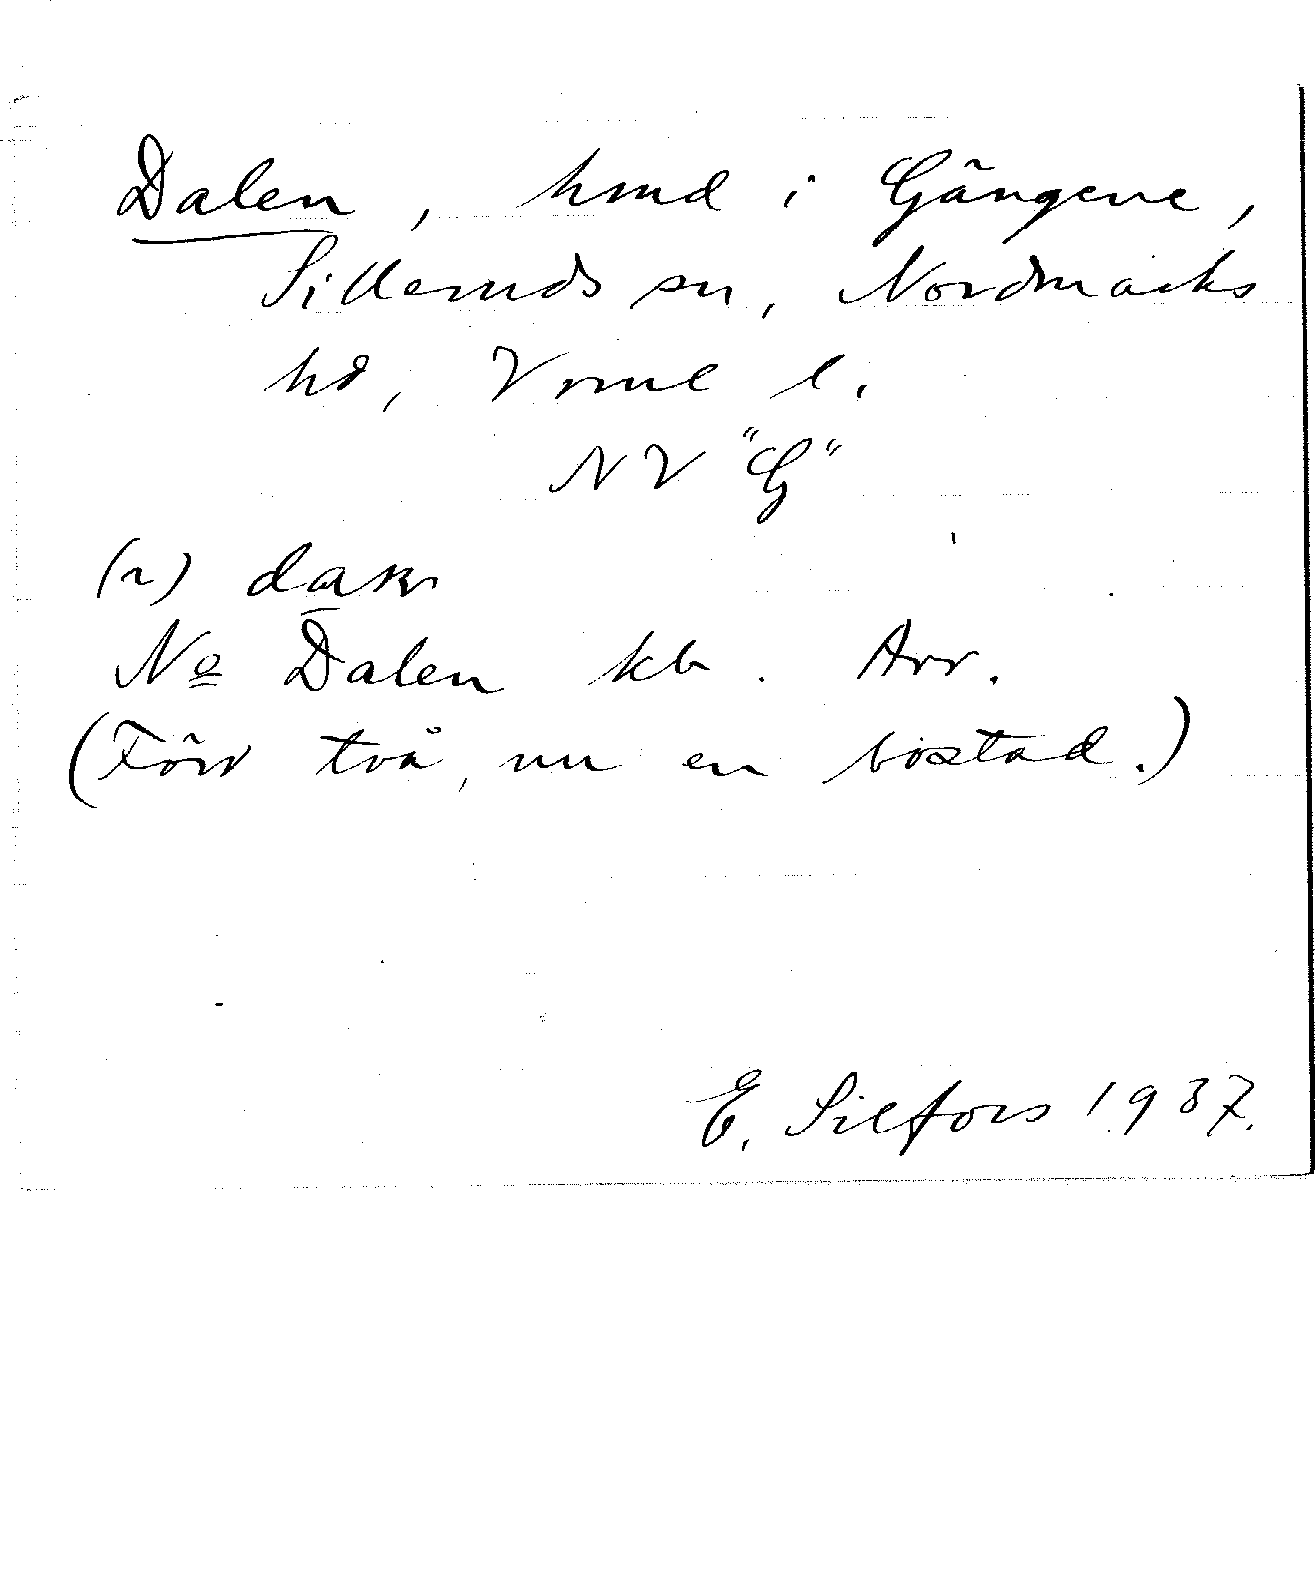 Dalen, hmd i Gängene,
Silleruds sn, Nordmarks
hd, Vrml l.
NV "G"
(2)
No Dalen kb. Arr.
(Förr två, nu en bostad.)
E. Silfors 1937.